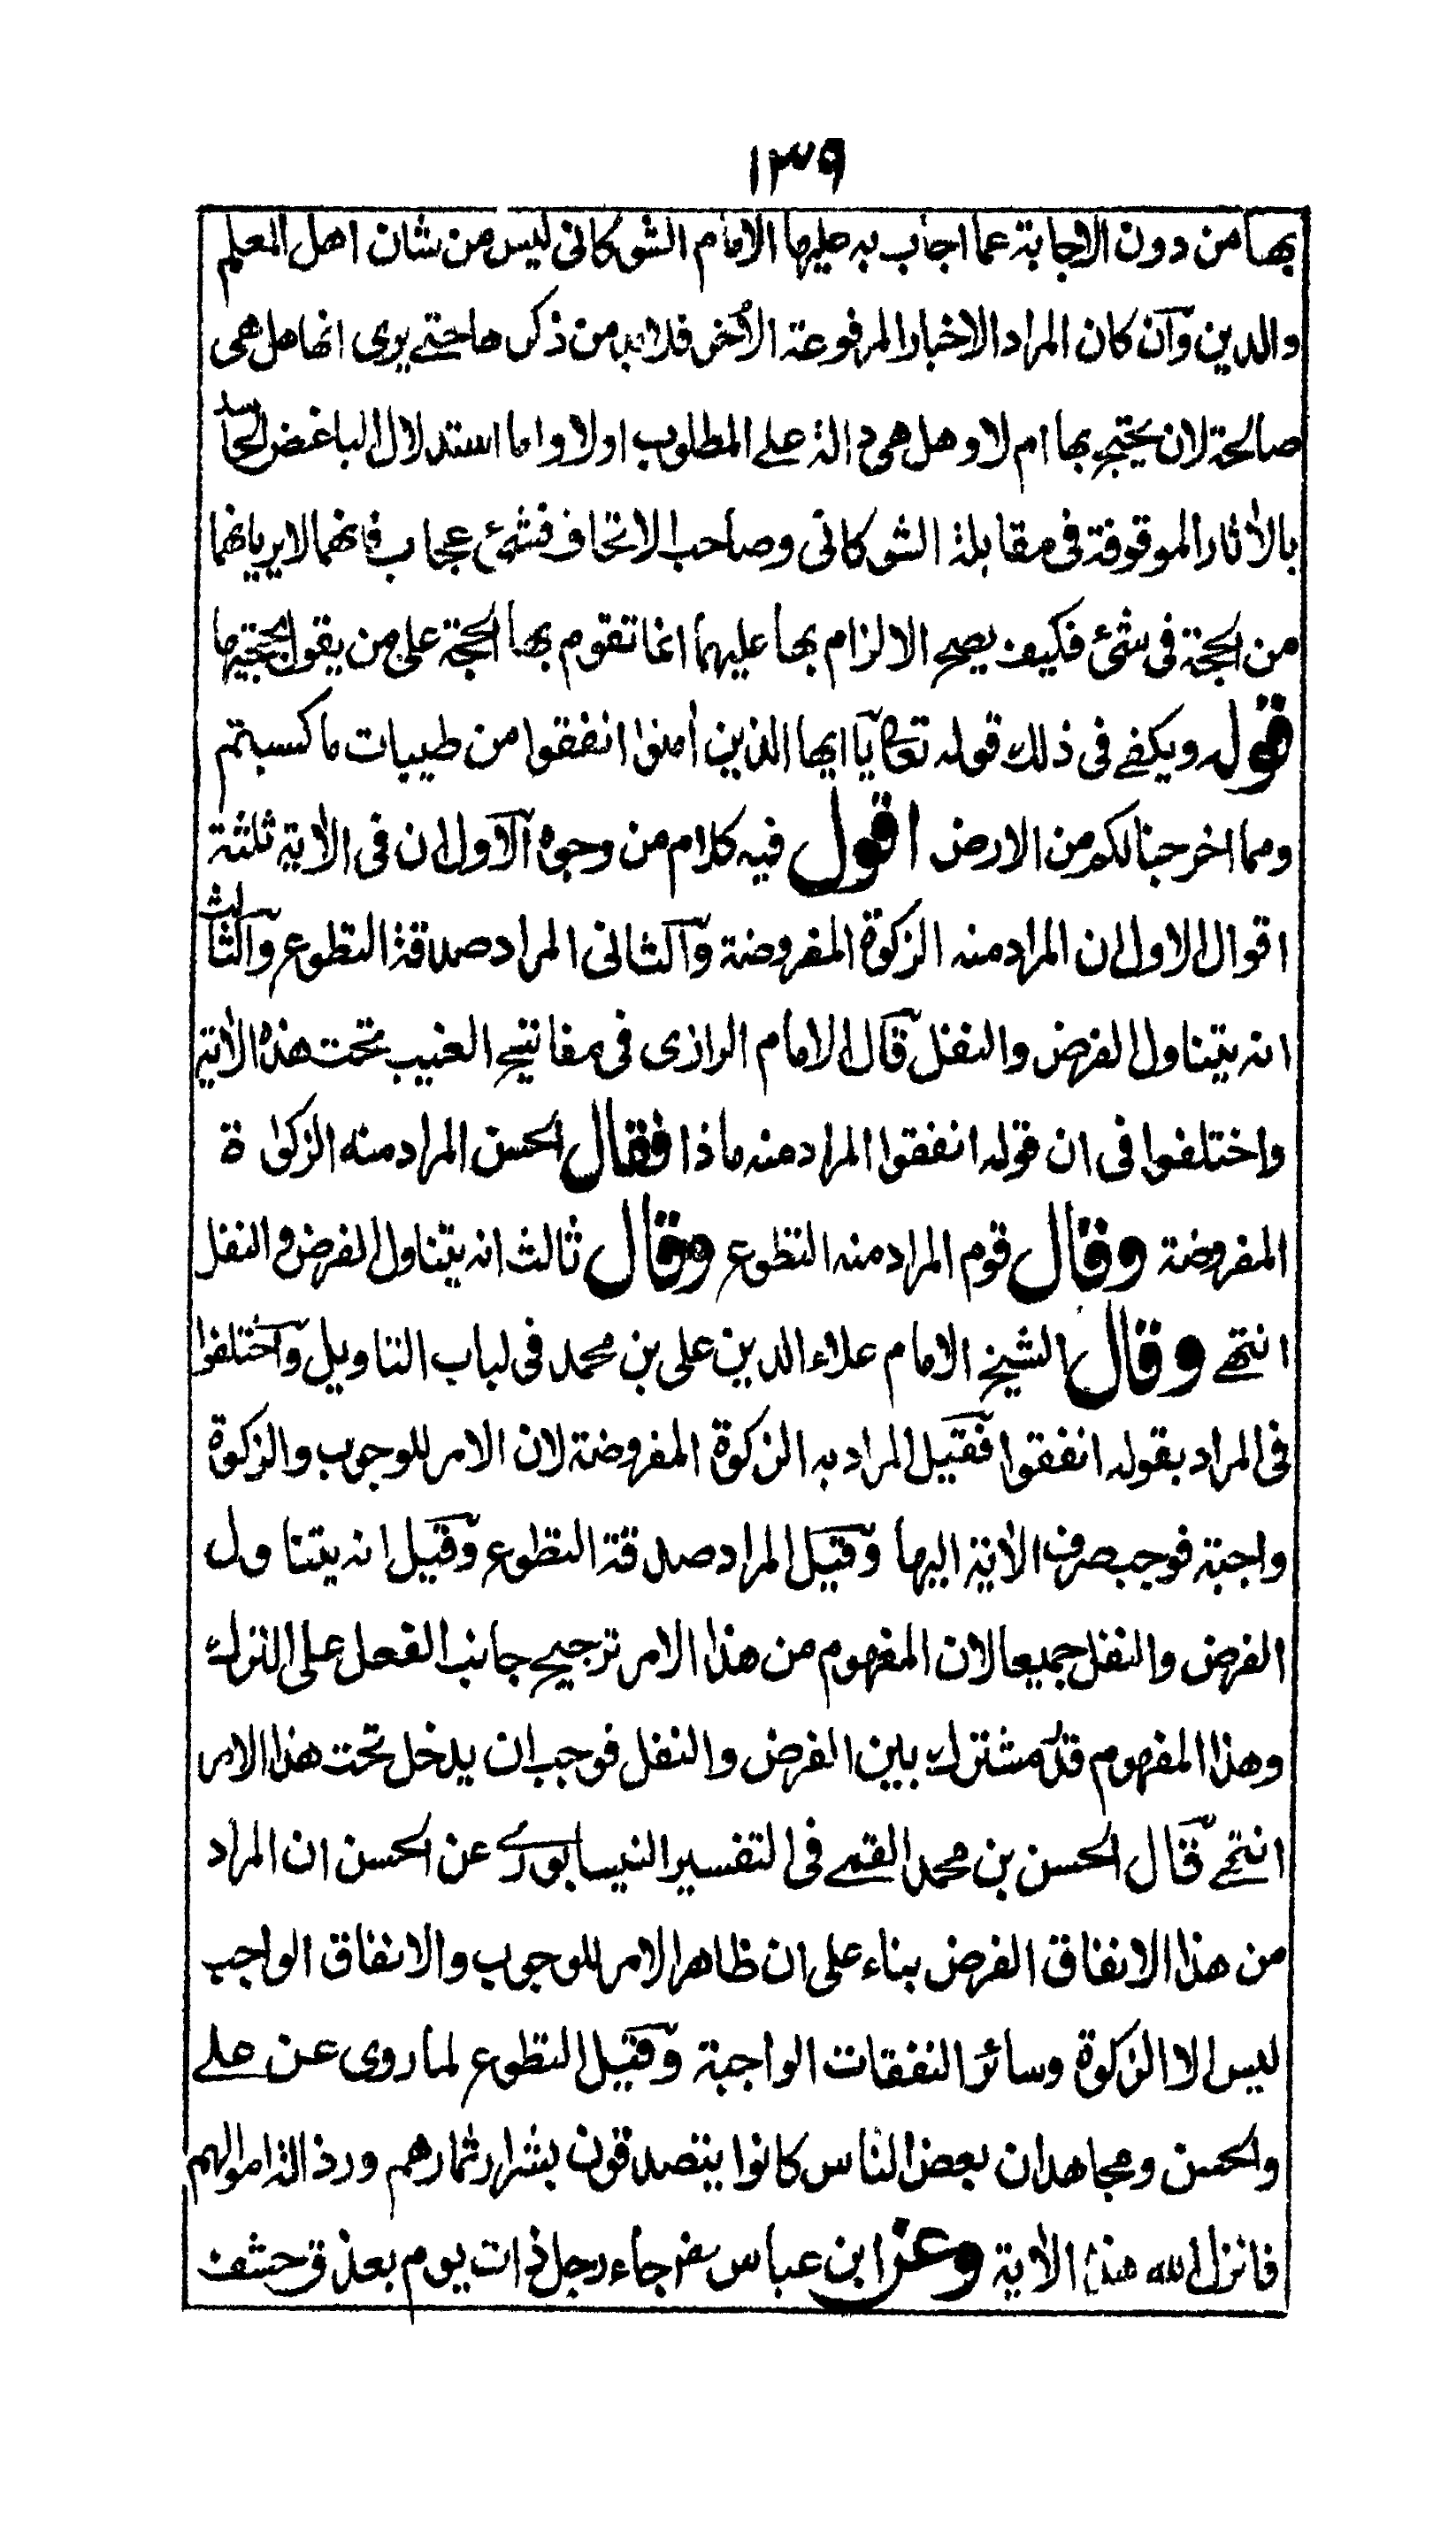 ١٣٩
بها من دون الاجابة عما اجاب به عليها الامام الشوكانى ليس من شان اهل العلم
والدين وآن كان المراد الاخبار المرفوعة الأخر فلابد من ذكرها حتے يرى انها هل هى
صالحة لان يحتج بها ام لا وهل هى دالة علے المطلوب اولا واما استدلال الباغض الحاسد
بالأثار الموقوفة فى مقابلة الشوكانى وصاحب الاتحاف فشئ عجاب فانهما لا يريانهما
من الحجة فى شئ فكيف يصح الالزام بها عليهما انما تقوم بها الحجة على من يقول بحجيتها
قوله ويكفے فى ذلك قوله تعالى يآ ايها الذين أمنوا انفقوا من طيبات ما كسبتم
ومما اخرجنا لكم من الارض اقول فيه كلام من وجوه الآول ان فى الأية ثلثة
اقوال الاول ان المراد منه الزكوة المفروضة وآلثانى المراد صدقة التطوع وآلثالث
انه يتناول الفرض والنفل قآل الامام الرازى فى مفاتيح الغيب تحت هذه الأية
واختلفوا فى ان قوله انفقوا المراد منه ماذا فقال الحسن المراد منه الزكوٰة
المفروضة وقال قوم المراد منه التطوع وقال ثالث انه يتناول الفرض والنفل
انتهے وقال الشيخ الامام علاء الدين على بن محمد فى لباب التاويل وآختلفوا
فى المراد بقوله انفقوا فقيل المراد به الزكوة المفروضة لان الامر للوجوب والزكوة
واجبة فوجب صرف الأية اليها وقيل المراد صدقة التطوع وقيل انه يتناول
الفرض والنفل جميعا لان المفهوم من هذا الامر ترجيح جانب الفعل على الترك
وهذا المفهوم قدر مشترك بين الفرض والنفل فوجب ان يدخل تحت هذا الامر
انتهے قآل الحسن بن محمد القمے فى التفسير النيسابورے عن الحسن ان المراد
من هذا الانفاق الفرض بناء على ان ظاهر الامر للوجوب والانفاق الواجب
ليس الا الزكوة وسائر النفقات الواجبة وقيل التطوع لما روى عن علے
والحسن ومجاهد ان بعض الناس كانوا يتصدقون بشرار ثمارهم ورذالة اموالهم
فانزل الله هذه الأية وعن ابن عباس رضـ جاء رجل ذات يوم بعذق حشف